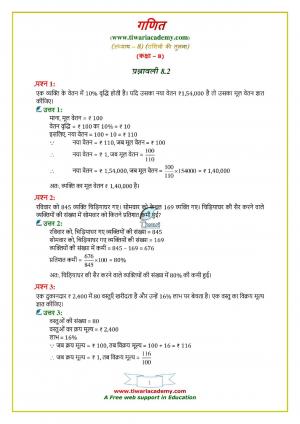 गणित
(www.tiwariacademy.com)
(अध्याय – 8) (राशियों की तुलना)
(कक्षा – 8)
प्रश्नावली 8.2
प्रश्न 1:
एक व्यक्ति के वेतन में 10% वृद्धि होती है। यदि उसका नया वेतन ₹1,54,000 है तो उसका मूल वेतन ज्ञात
कीजिए।
उत्तर 1:
माना, मूल वेतन = ₹ 100
वेतन वृद्धि = ₹ 100 का 10% = ₹ 10
इसलिए, नया वेतन = ₹ 100 + ₹ 10 = ₹ 110
∵ नया वेतन = ₹ 110, जब मूल वेतन = ₹ 100
∴ नया वेतन = ₹ 1, जब मूल वेतन = 100/110
∴ नया वेतन = ₹ 1,54,000, जब मूल वेतन = 100/110 × 154000 = ₹ 1,40,000
अतः व्यक्ति का मूल वेतन ₹ 1,40,000 है।
प्रश्न 2:
रविवार को 845 व्यक्ति चिड़ियाघर गए। सोमवार को केवल 169 व्यक्ति गए। चिड़ियाघर की सैर करने वाले
व्यक्तियों की संख्या में सोमवार को कितने प्रतिशत कमी हुई?
उत्तर 2:
रविवार को, चिड़ियाघर गए व्यक्तियों की संख्या = 845
सोमवार को, चिड़ियाघर गए व्यक्तियों की संख्या = 169
व्यक्तियों की संख्या में कमी = 845 – 169 = 676
प्रतिशत कमी = 676/845 × 100 = 80%
अतः, चिड़ियाघर की सैर करने वाले व्यक्तियों की संख्या में 80% की कमी हुई।
प्रश्न 3:
एक दुकानदार ₹ 2,400 में 80 वस्तुएँ खरीदता है और उन्हें 16% लाभ पर बेचता है। एक वस्तु का विक्रय मूल्य
ज्ञात कीजिए।
उत्तर 3:
वस्तुओं की संख्या = 80
वस्तुओं का क्रय मूल्य = ₹ 2,400
लाभ = 16%
∵ जब क्रय मूल्य = ₹ 100, तब विक्रय मूल्य = 100 + 16 = ₹ 116
∴ जब क्रय मूल्य = ₹ 1, तब विक्रय मूल्य = ₹ 116/100
1
www.tiwariacademy.com
A Free web support in Education